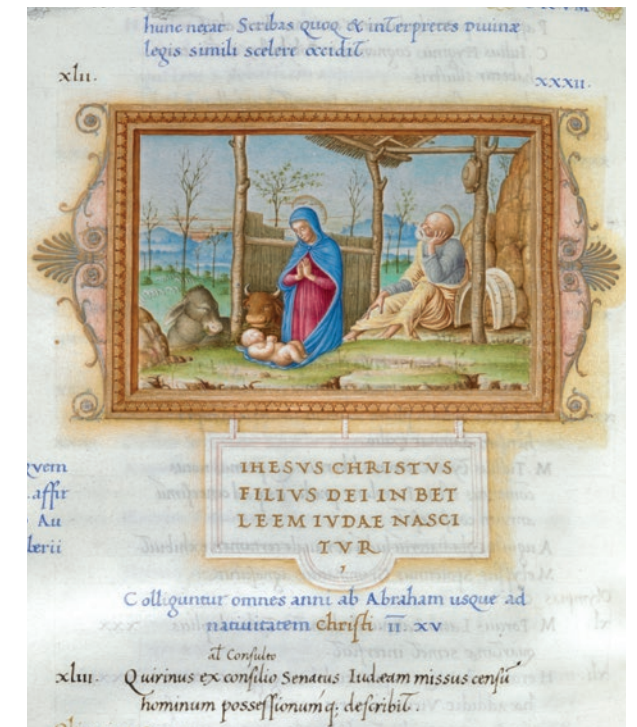 hunc necat. Scribas quoq & interpretes divinæ
legis simili scelere occidit
xlii.
xxxii.
IHESVS CHRISTVS
FILIVS DEI IN BET
LEEM IVDAE NASCI
TVR
quem
affir
Au
berii
Colliguntur omnes anni ab Abraham usque ad
nativitatem christi II. XV
al Consulto
xliii. Quirinus ex consilio Senatus Iudæam missus censū
hominum possessionumq. describit.